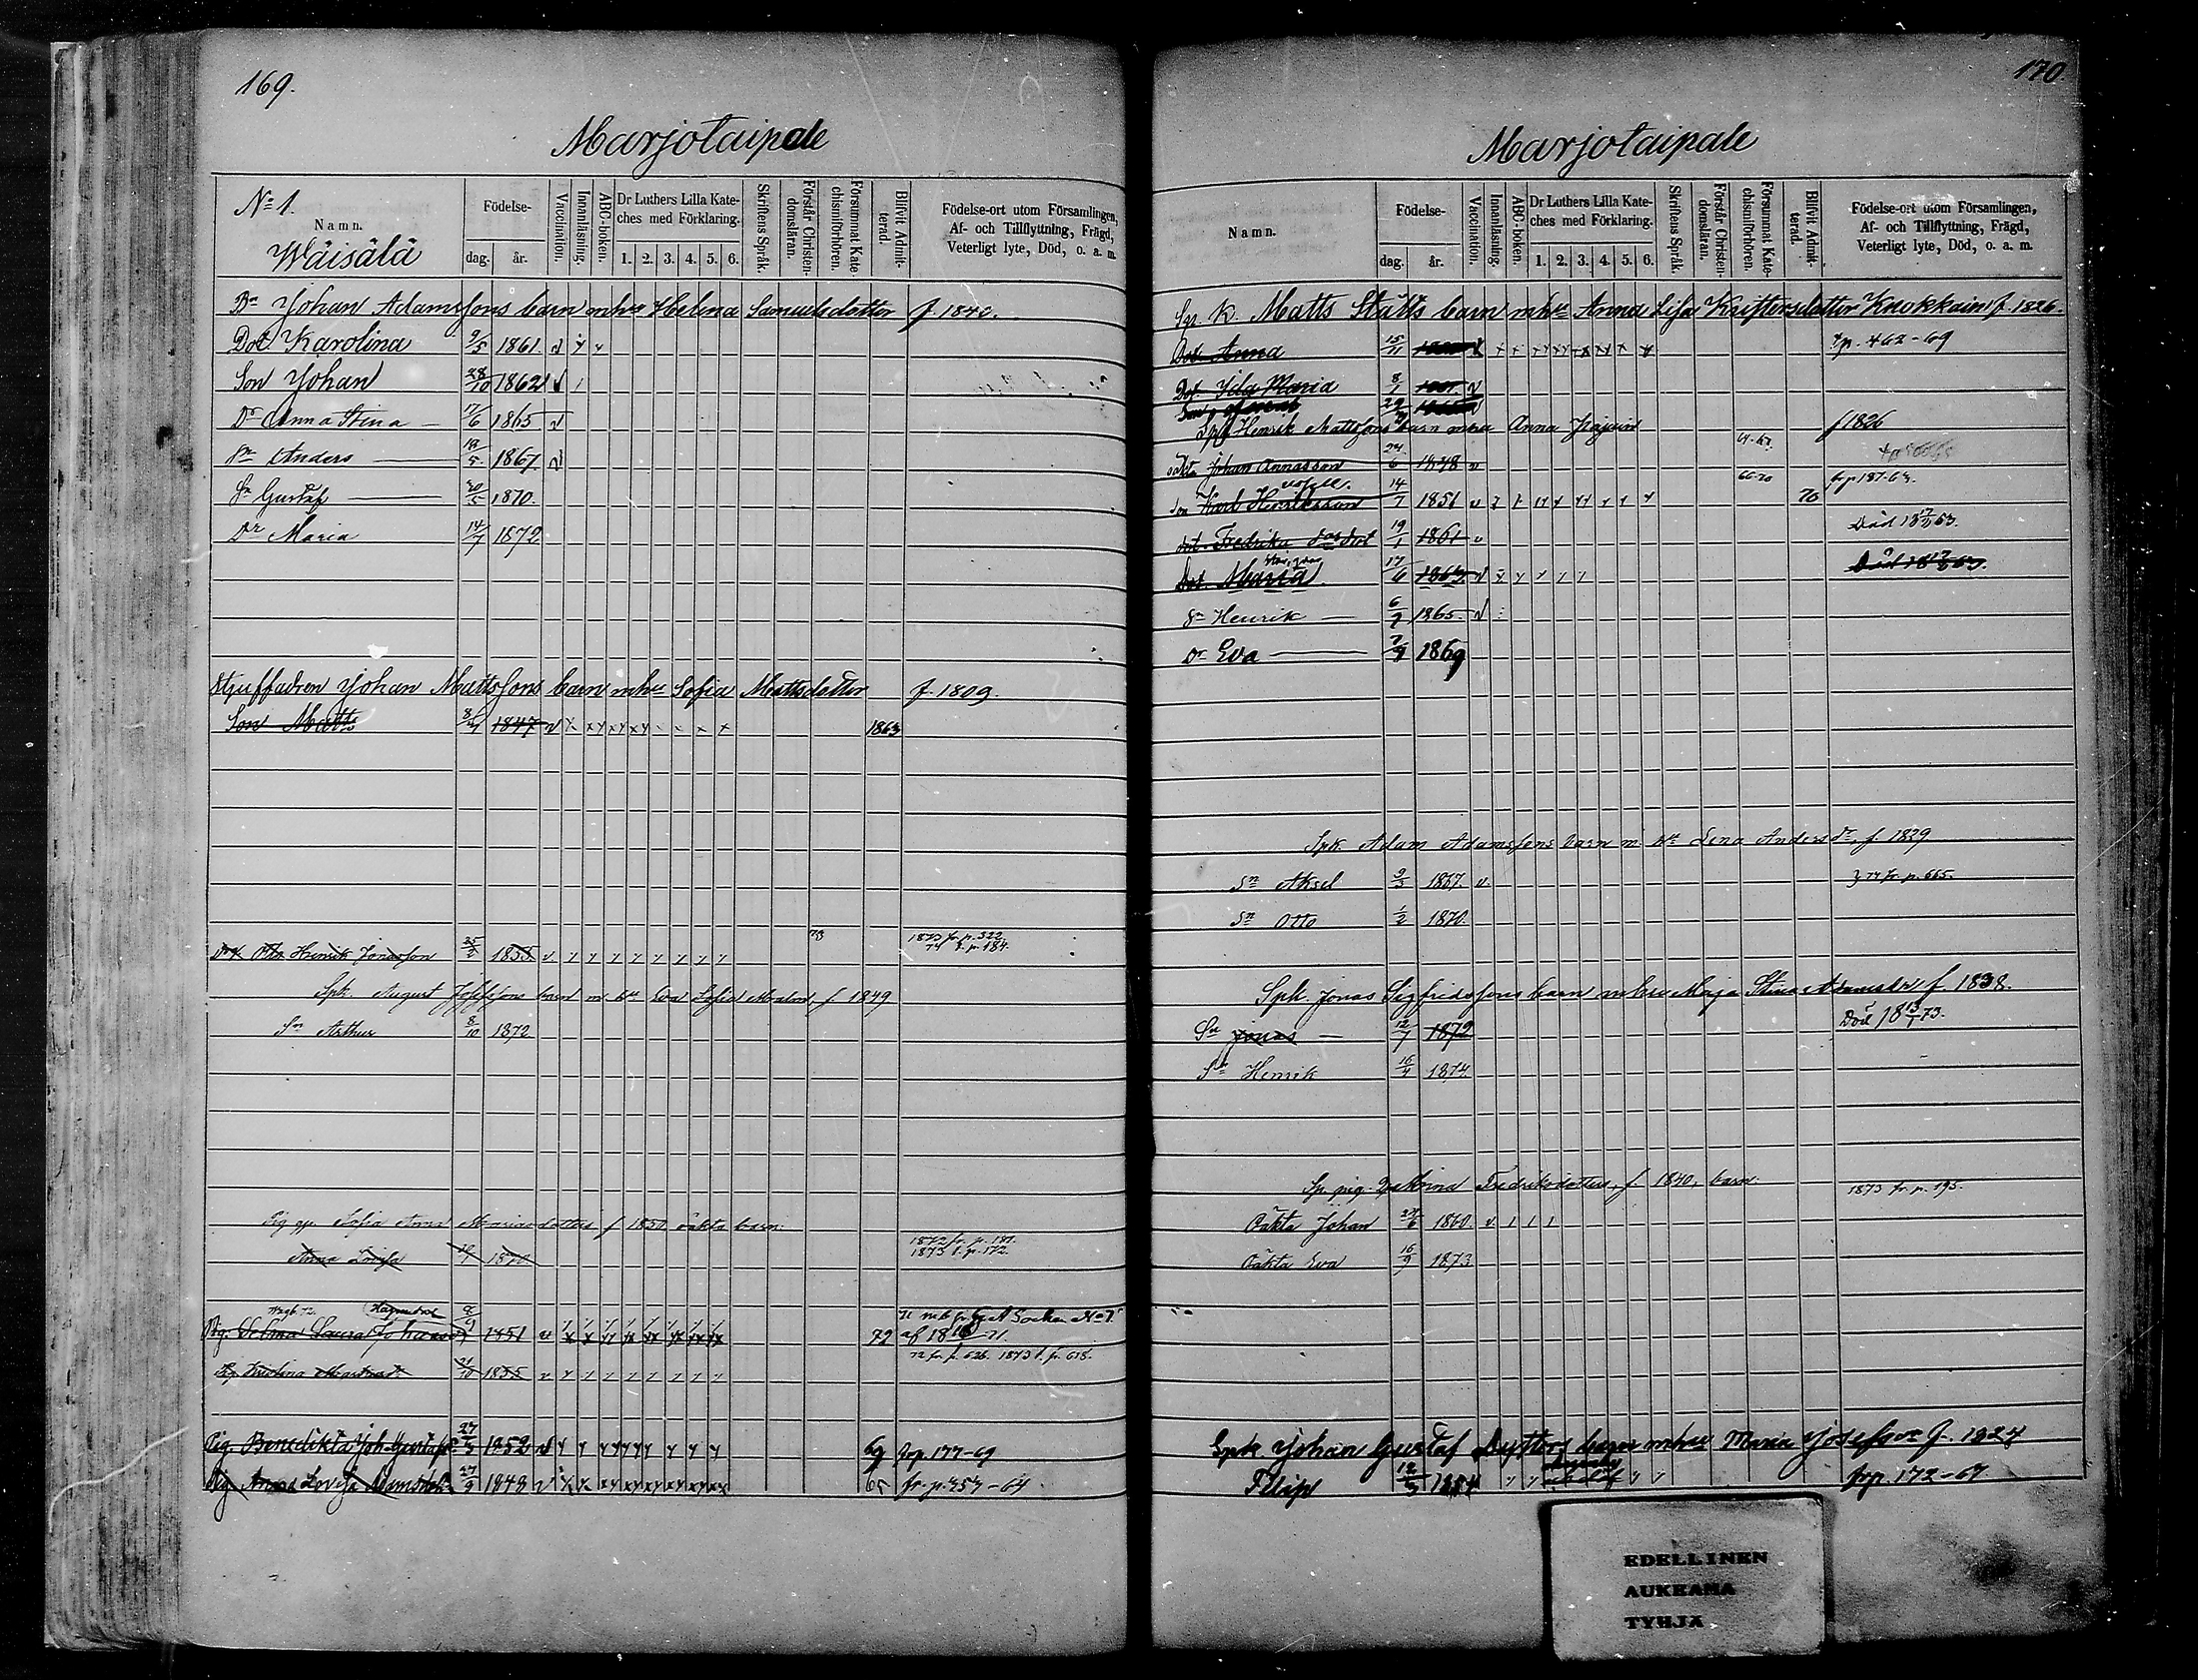 169.
Marjotaipale
No 1.
Namn.
Wäisälä
Födelse-
dag. år.
Vaccination.
Innanläsning.
ABC-boken.
Dr Luthers Lilla Kate-
ches med Förklaring.
1. 2. 3. 4. 5. 6.
Skriftens Språk.
Förstår Christen-
domsläran.
Försummat Kate-
chismiförhören.
Blifvit Admit-
terad.
Födelse-ort utom Församlingen,
Af- och Tillflyttning, Frägd,
Veterligt lyte, Död, o. a. m.
Bn Johan Adamssons barn mhu Helena Samuelsdotter f. 1840.
Dot. Karolina 9/5 1861. v
Son Johan 28/10 1862 v
Dr Anna Stina — 17/6 1865 v
Sn Anders — 1867 v
Sn Gustaf — 1870.
Dr Maria 14/7 1872
Styffadren Johan Mattssons barn mhu Sofia Mattsdotter f. 1809.
Son Matts 1847 v 1863
Henrik Jonasson 25/2 1855 v. 73 1873 fr. p. 322.
74 t. p. 184.
Spk. August Josefssons barn m. hu Eva Sofia Malm, f 1849
Sn Arthur 8/10 1872
Pig gp. Sofia Anna Mariasdotter f 1850 oäkta barn:
Anna Lovisa 1870 1872 fr. p. 181.
1873 t. p. 172.
Pig. Selma Laura 1851 72
af 18 71.
1855 v 72 fr. p. 626. 1873 t. p. 618.
Pig. Benedikta Joh. Gustafs 27/3 1852 v 69 frp. 177-69
Pig. Anna Lovisa Adamsdotr 27/9 1848 v 65 fr. p. 353-64
170.
Marjotaipale
Namn.
Födelse-
dag. år.
Vaccination.
Innanläsning.
ABC-boken.
Dr Luthers Lilla Kate-
ches med Förklaring.
1. 2. 3. 4. 5. 6.
Skriftens Språk.
Förstår Christen-
domsläran.
Försummat Kate-
chismiförhören.
Blifvit Admit-
terad.
Födelse-ort utom Församlingen,
Af- och Tillflyttning, Frägd,
Veterligt lyte, Död, o. a. m.
Matts Ståtts barn mhu Anna Lisa Kristersdotter Knokkain f. 1826.
Dot. Anna 15/11 p. 462-69
Dot. Ida Maria 8/1
Henrik Mattssons barn mhu Anna f 1826
oäkta Johan Annasson 1848 v 64-67.
son Karl Henriksson 14/7 1851 v 66-70 70 frp 187-63.
dot. Fredrika 19/1 1861 v Död 18 17/2 63.
Dot. Maria 17/6 1863 v
Sn Henrik — 6/9 1865 v
Dr Eva — 1869
Spk. Adam Adamssons barn m. hu Lena Andersdr, f. 1829
Sn Aksel 9/3 1867. v. fr. p. 665.
Sn Otto 1/2 1870.
Spk. Jonas Sigfridssons barn mhu Maja Stina Adamsdr f. 1838.
Sn Jonas — 12/7 1872 Död 18 13/1 73.
Sn Henrik 16/4 1874.
Fredriksdotter, f 1840, barn: 1873 fr. p. 195.
Oäkta Johan 1860. v.
Oäkta Eva 16/9 1873
Spk Johan Gustaf barn mhu Maria Josefsdr f. 1824
Filip 12/5 1854 frp. 172-67
EDELLINEN
AUKEAMA
TYHJÄ